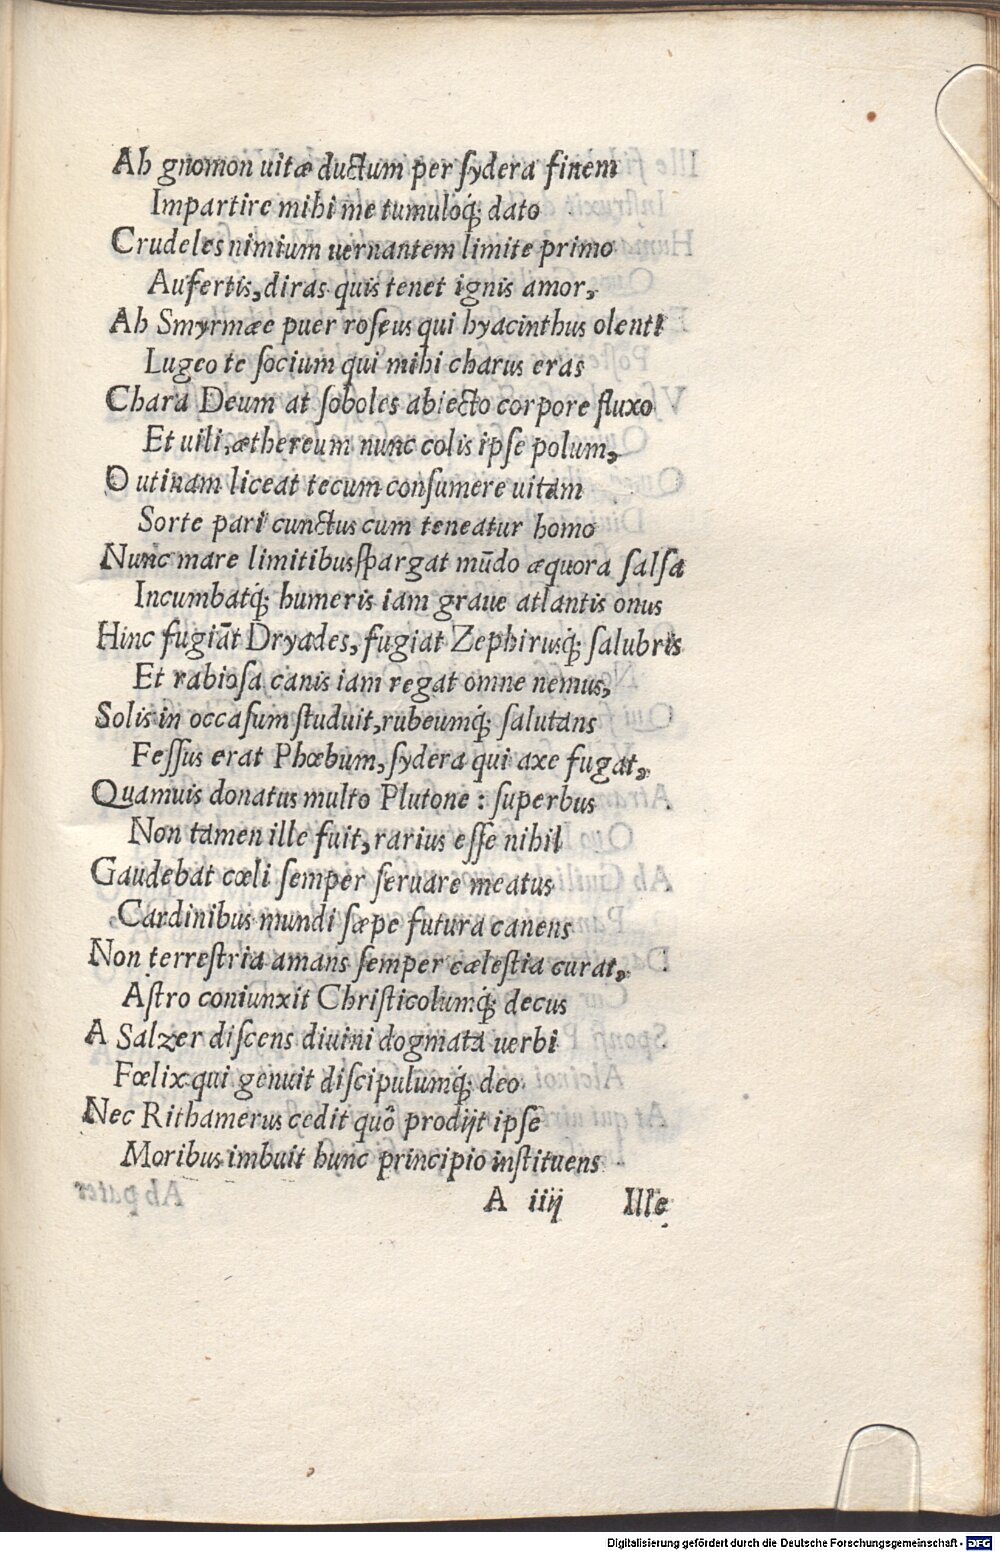 Ab gnomon uitæ ductum per ſydera finem
Impartire mihi me tumuloq́; dato
Crudeles nimium uernantem limite primo
Aufertis, diras quis tenet ignis amor,
Ab Smyrmæe puer roſeus qui hyacinthus olenti
Lugeo te ſocium qui mihi charus eras
Chara Deum at ſoboles abiecto corpore fluxo
Et uili, æthereum nunc colis ipſe polum,
O utinam liceat tecum conſumere uitam
Sorte pari cunctus cum teneatur homo
Nunc mare limitibus ſpargat mūdo æquora ſalſa
Incumbatq́; humeris iam graue atlantis onus
Hinc fugiāt Dryades, fugiat Zephirusq́; ſalubris
Et rabioſa canis iam regat omne nemus,
Solis in occaſum ſtuduit, rubeumq́; ſalutans
Feſſus erat Phœbum, ſydera qui axe fugat,
Quamuis donatus multo Plutone : ſuperbus
Non tamen ille fuit, rarius eſſe nihil
Gaudebat cœli ſemper ſeruare meatus
Cardinibus mundi ſæpe futura canens
Non terreſtria amans ſemper cæleſtia curat,
Aſtro coniunxit Chriſticolumq́; decus
A Salzer diſcens diuini dogmata uerbi
Fœlix qui genuit diſcipulumq́; deo
Nec Rithamerus cedit quô prodijt ipſe
Moribus imbuit hunc principio inſtituens
A iiij Ille
Digitalisierung gefördert durch die Deutsche Forschungsgemeinschaft - DFG